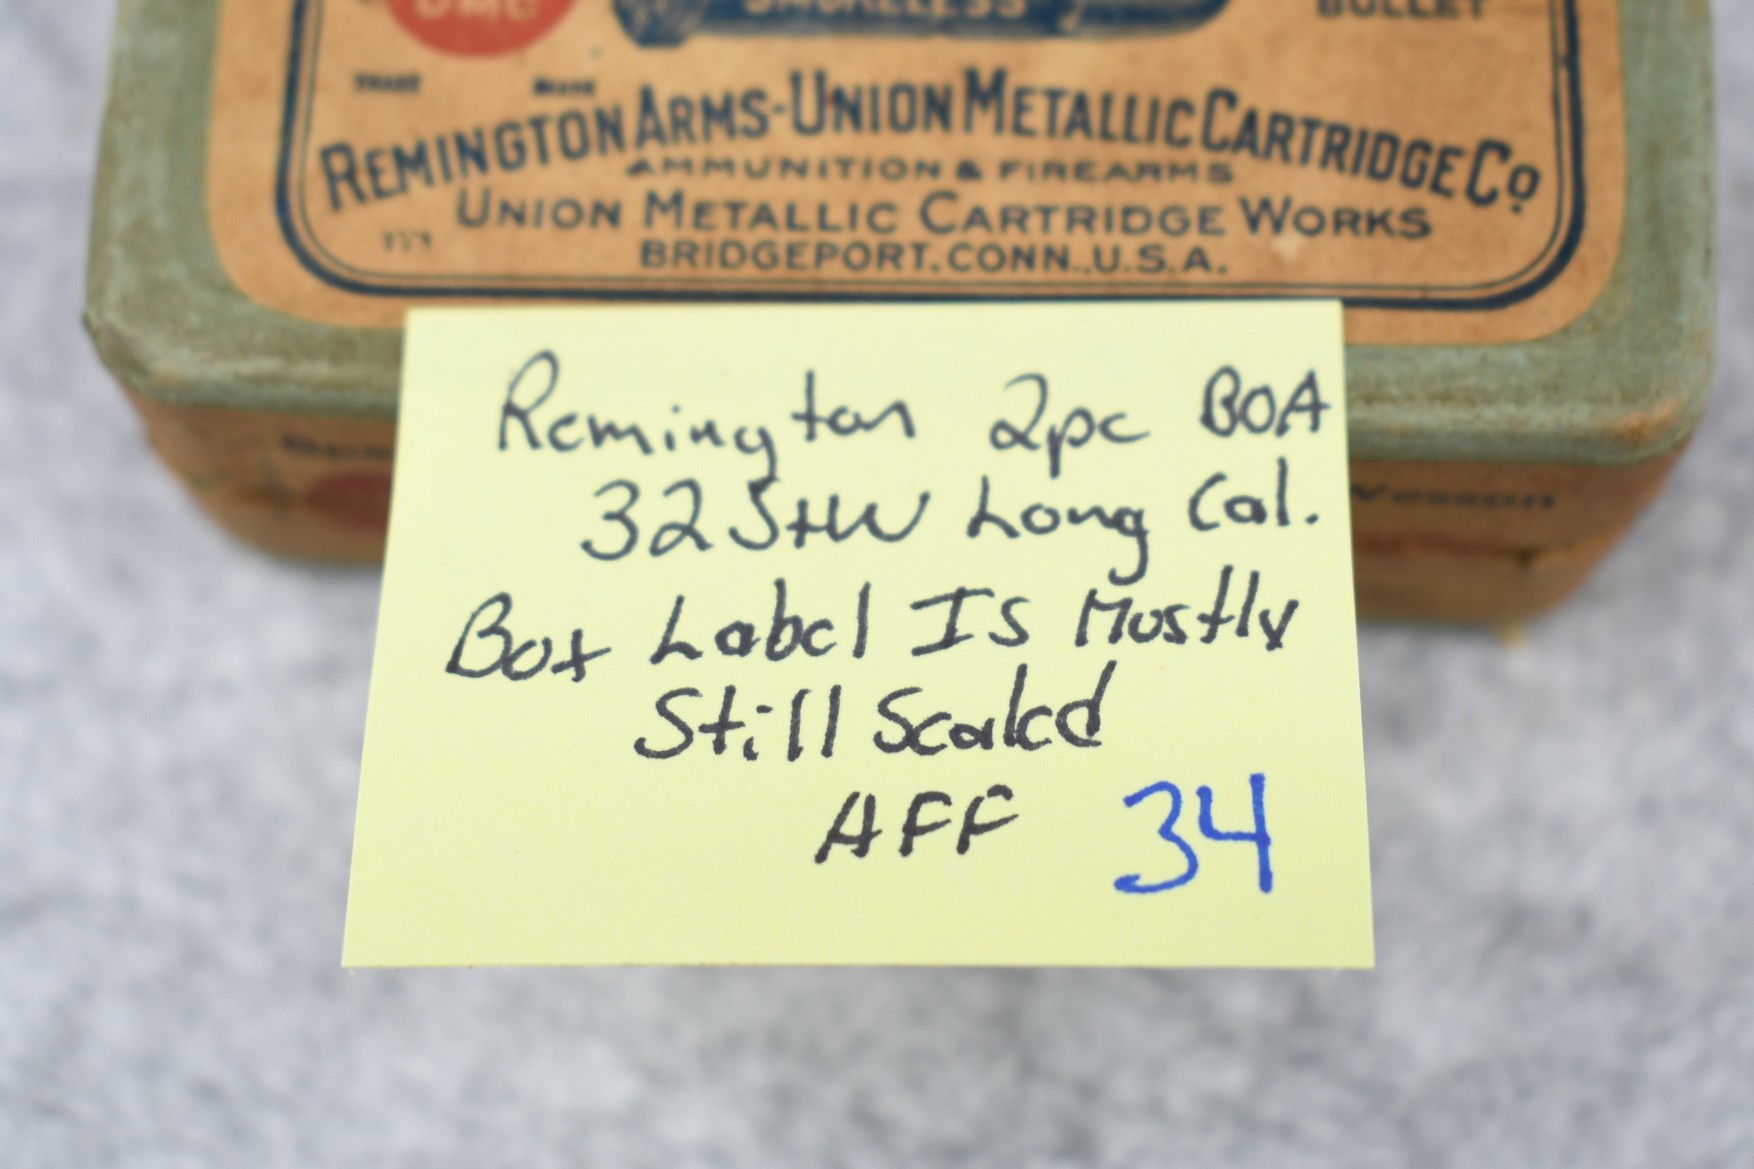 UMC
SMOKELESS
BULLET
TRADE MARK
REMINGTON ARMS-UNION METALLIC CARTRIDGE CO
AMMUNITION & FIREARMS
UNION METALLIC CARTRIDGE WORKS
BRIDGEPORT, CONN., U.S.A.
Wesson
Remington 2pc BOA
32 S+W Long Cal.
Box Label Is Mostly
Still Sealed
AFF 34